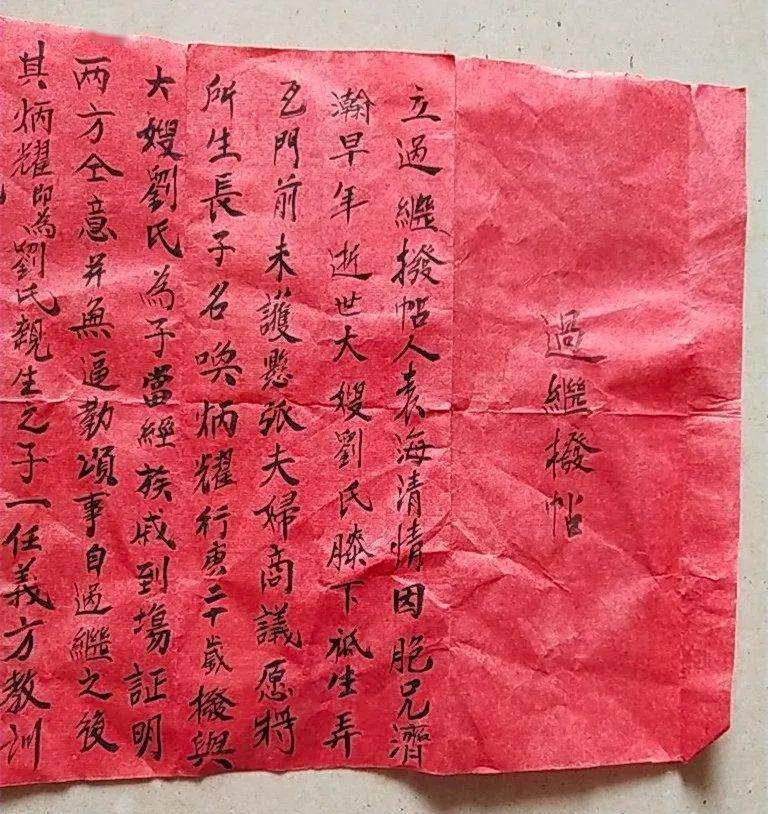 過繼撥帖
立過繼撥帖人袁海清情因胞兄濟
瀚早年逝世大嫂劉氏膝下祗生弄
瓦門前未護懸弧夫婦商議愿將
所生長子名喚炳耀行庚二十歲撥與
大嫂劉氏為子當經族戚到塲証明
两方仝意并無逼勒項事自過繼之後
其炳耀即為劉氏親生之子一任義方教訓